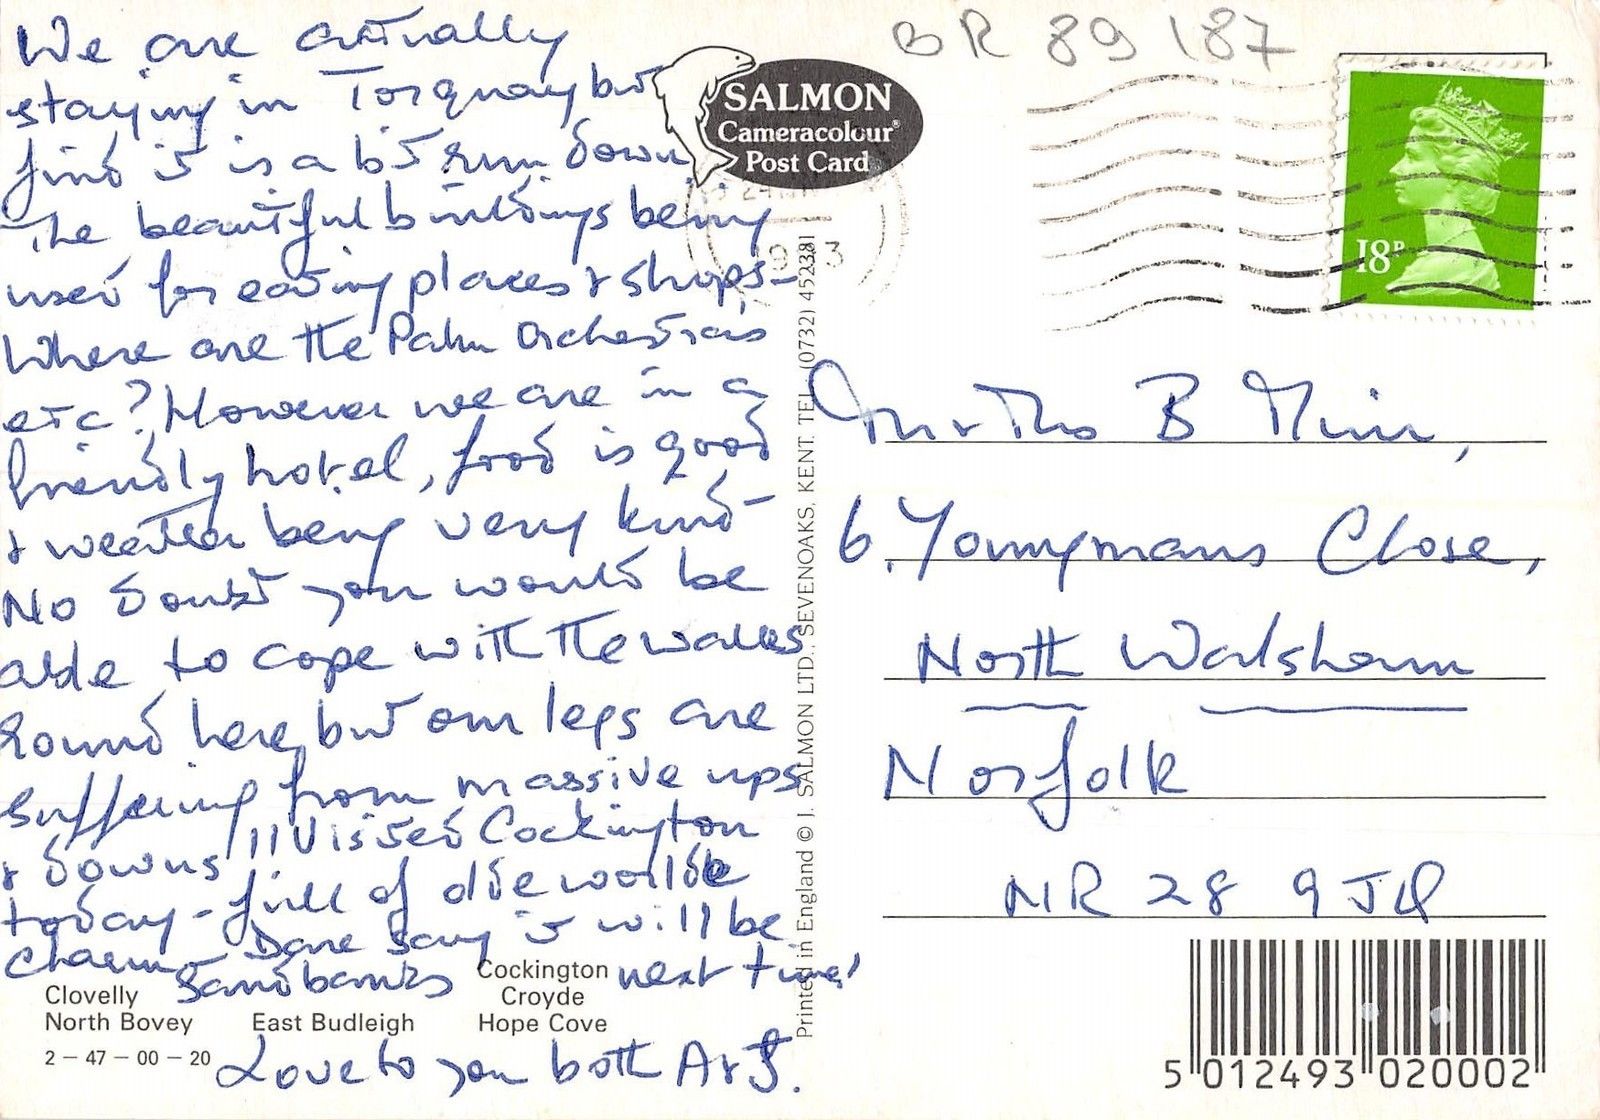 We are actually
staying in Torquay but
find it is a bit run down
The beautiful buildings being
used for eating places & shops -
Where are the Palm Orchestras
etc? However we are in a
friendly hotel, food is good
& weather being very kind -
No doubt you would be
able to cope with the walks
round here, but our legs are
suffering from massive ups
& downs!! Visited Cockington
today - full of olde worlde
charm - Dare say it will be
Sandbanks next time!
Love to you both A & J.
Clovelly
North Bovey
East Budleigh
Cockington
Croyde
Hope Cove
2 – 47 – 00 – 20
SALMON
Cameracolour®
Post Card
Printed in England © J. SALMON LTD., SEVENOAKS, KENT. TEL. (0732) 452381
BR 89 187
18P
Mr & Mrs B
6. Youngmans Close,
North Walsham
Norfolk
NR 28 9JQ
5 012493 020002